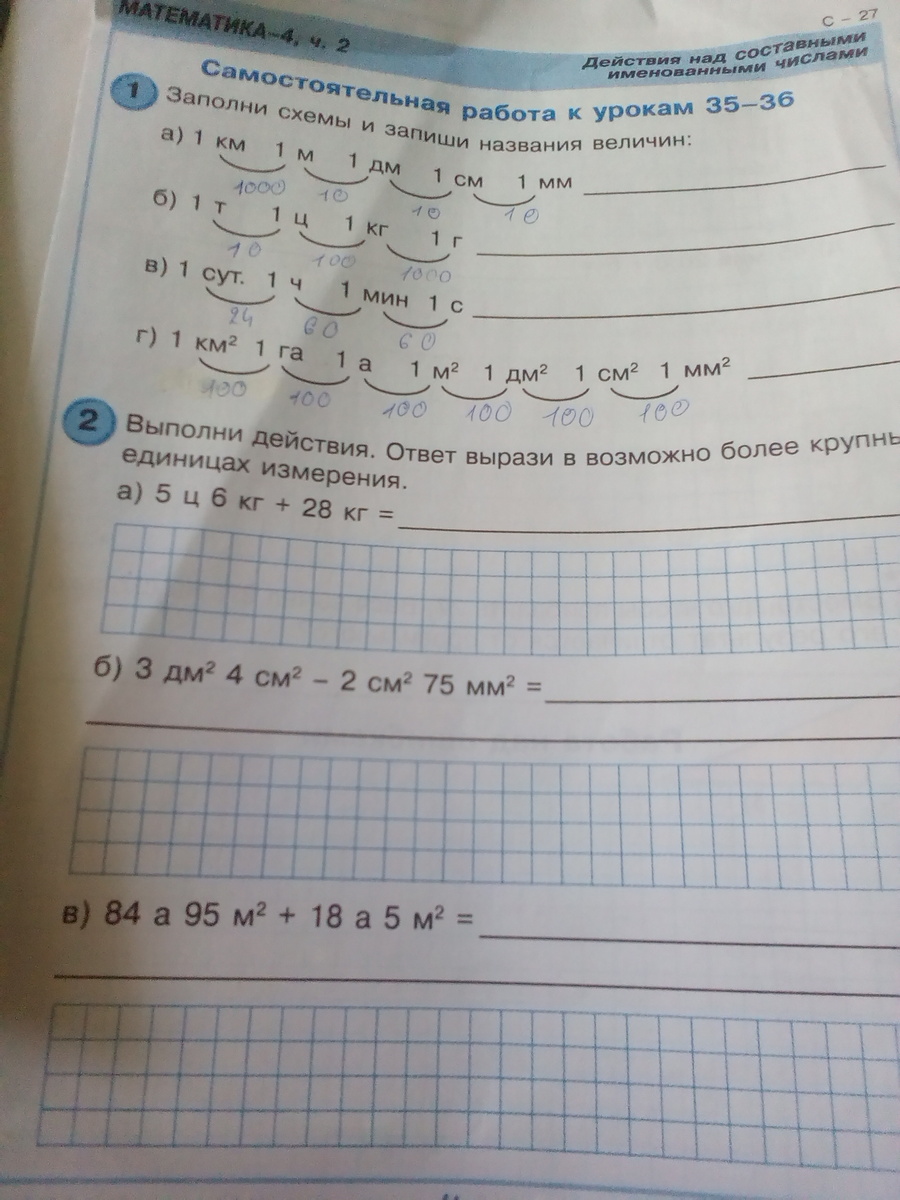 С – 27
МАТЕМАТИКА–4, ч. 2
Действия над составными
именованными числами
Самостоятельная работа к урокам 35–36
1 Заполни схемы и запиши названия величин:
а) 1 км 1 м 1 дм 1 см 1 мм
1000 10 10 10
б) 1 т 1 ц 1 кг 1 г
10 100 1000
в) 1 сут. 1 ч 1 мин 1 с
24 60 60
г) 1 км² 1 га 1 а 1 м² 1 дм² 1 см² 1 мм²
100 100 100 100 100 100
2 Выполни действия. Ответ вырази в возможно более крупнь
единицах измерения.
а) 5 ц 6 кг + 28 кг =
б) 3 дм² 4 см² – 2 см² 75 мм² =
в) 84 а 95 м² + 18 а 5 м² =